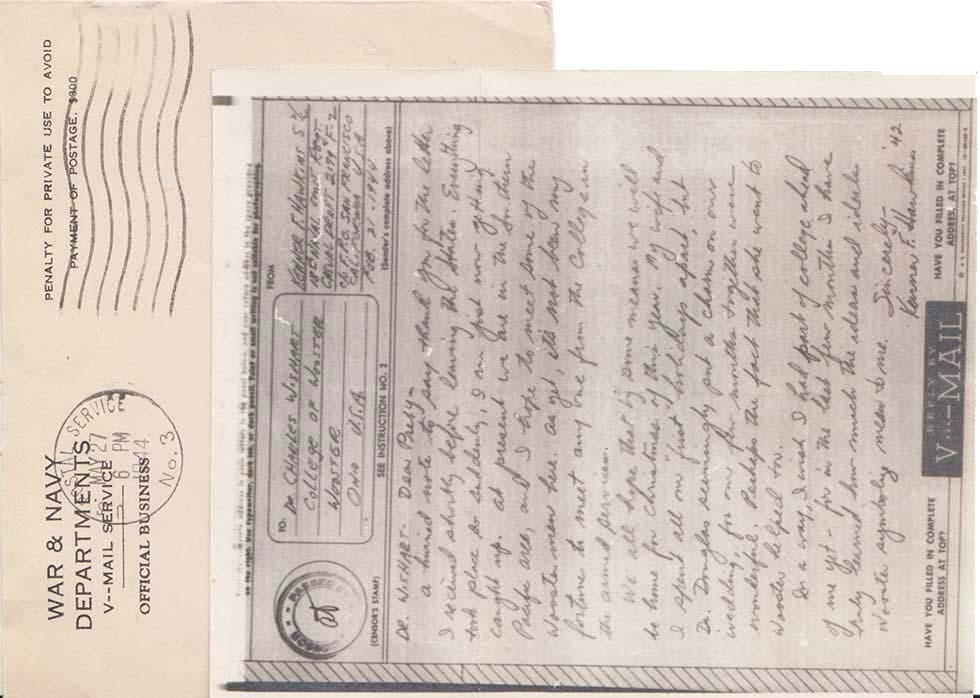 WAR & NAVY
DEPARTMENTS
V--MAIL SERVICE
OFFICIAL BUSINESS
PENALTY FOR PRIVATE USE TO AVOID
PAYMENT OF POSTAGE. $300
POSTAL SERVICE
MAY 27
6 PM
1944
No. 3
on the right. Use typewriter, dark ink, or dark pencil. Faint or small writing is not suitable for photographing.
PASSED BY
(CENSOR'S STAMP)
TO:
DR CHARLES WISHART
COLLEGE OF WOOSTER
WOOSTER
OHIO U.S.A
SEE INSTRUCTION NO. 2
FROM
F. HAWKINS
18th NAVAL CONST. REGT.
2194
c/o F.P.O. SAN FRANCISCO
CALIFORNIA U.S.A.
FEB. 21 - 1944
(Sender's complete address above)
DR. WISHART - Dear Prexy -
a hurried note to say thank you for the letter
I received shortly before leaving the States. Everything
took place so suddenly, I am just now getting
caught up. At present we are in the Southern
Pacific area, and I hope to meet some of the
Wooster men here. As yet, it's not been my
fortune to meet any one from the College in
the armed services.
We all hope that by some means we will
be home for Christmas of this year. My wife and
I spent all our "just" holidays apart, but
Dr. Douglas seemingly put a charm on our
wedding, for our few months together were
wonderful. Perhaps the fact that she went to
Wooster helped too.
In a way, I wish I had part of college ahead
of me yet - for in the last few months I have
truly learned how much the ideas and ideals
Wooster symbolizes mean to me.
Sincerely -
Kenner F. Hawkins '42
HAVE YOU FILLED IN COMPLETE
ADDRESS AT TOP?
REPLY BY
V···-MAIL
HAVE YOU FILLED IN COMPLETE
ADDRESS AT TOP?